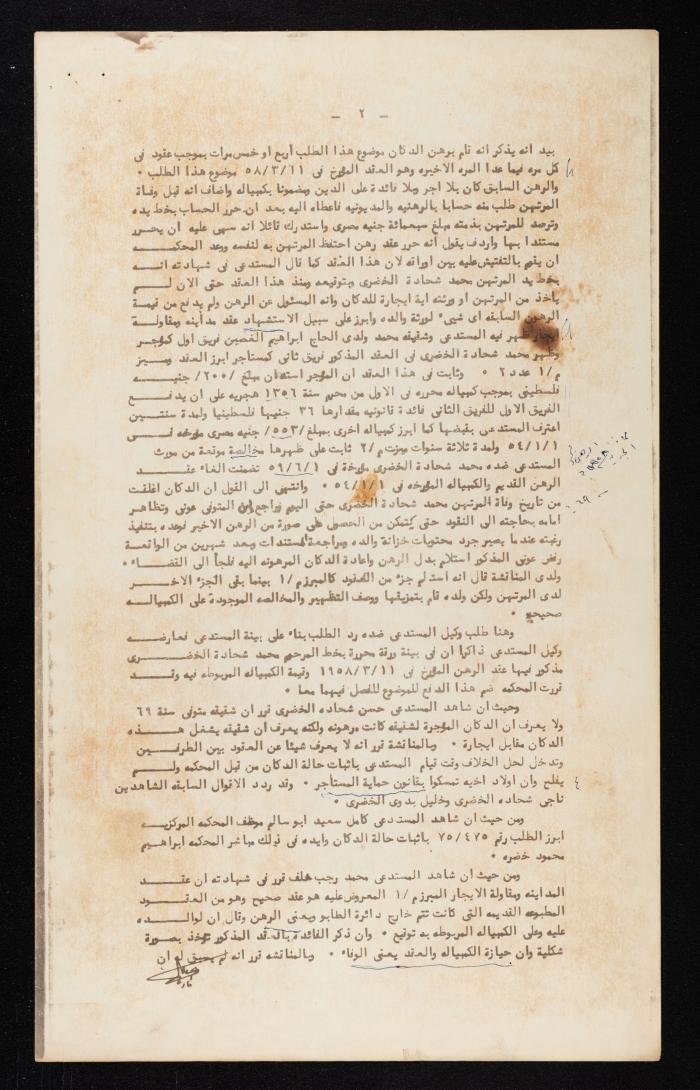 - ٢ -
بيد انه يذكر انه قام برهن الدكان موضوع هذا الطلب أربع او خمس مرات بموجب عقود فى
كل مره فيما عدا المره الاخيره وهو العقد المؤرخ فى ٥٨/٣/١١ موضوع هذا الطلب ٠
والرهن السابق كان بلا اجر وبلا فائدة على الدين ومضمونا بكمبياله واضاف انه قبل وفاة
المرتهن طلب منه حسابا بالرهنيه والمديونيه فاعطاه اليه بعد ان حرر الحساب بخط يده
وترصد للمرتهن بذمته مبلغ سبعمائة جنيه مصرى واستدرك قائلا انه سهى عليه ان يحرر
مستندا بها واردف يقول أنه حرر عقد رهن احتفظ المرتهن به لنفسه ووعد المحكمــه
ان يقوم بالتفتيش عليه بين اوراقه لان هذا العقد كما قال المستدعى فى شهادته انـــه
بخط يد المرتهن محمد شحادة الخضرى وبتوقيعه ومنذ هذا العقد حتى الان لـــم
ياخذ من المرتهن او ورثته اية ايجارة للدكان وانه المسئول عن الرهن ولم يدفع من قيمة
الرهون السابقه اى شيىء لورثة والده وابرز على سبيل الاستشهاد عقد مداينه ومقاولـــة
ايجار ظهر فيه المستدعى وشقيقه محمد ولدى الحاج ابراهيم الغصين فريق اول كمؤجر
وظهر محمد شحادة الخضرى فى العقد المذكور فريق ثانى كمستاجر ابرز العقد وميــز
م/١ عدد ٢ ٠ وثابت فى هذا العقد ان المؤجر استدان مبلغ /٢٠٠/ جنيـــه
فلسطينى بموجب كمبياله محرره فى الاول من محرم سنة ١٣٥٦ هجريه على ان يدفــع
الفريق الاول للفريق الثانى فائدة قانونيه مقدارها ٣٦ جنيها فلسطينيا ولمدة سنتــين
اعترف المستدعى بقبضها كما ابرز كمبياله اخرى بمبلغ /٥٥٣/ جنيه مصرى مؤرخه فـــى
٥٤/١/١ ولمدة ثلاثة سنوات وميزت م/٢ ثابت على ظهرها مخالصة موقعة من مورث
المستدعى ضده محمد شحادة الخضرى مؤرخة فى ٥٦/٦/١ تضمنت الغاء عقـــد
الرهن القديم والكمبياله المؤرخه فى ٥٤/١/١ ٠ وانتهى الى القول ان الدكان اغلقت
من تاريخ وفاة المرتهن محمد شحادة الخضرى حتى اليوم وراجع ابن المتوفى عونى وتظاهر
امامه بحاجته الى النقود حتى يتمكن من الحصول على صورة من الرهن الاخير فوعده بتنفيذ
رغبته عندما يصير جرد محتويات خزانة والده ومراجعة المستندات وبعد شهرين من الواقعـة
رفض عونى المذكور استلام بدل الرهن واعادة الدكان المرهونه اليه فلجأ الى القضاء ٠
ولدى المناقشة قال انه استلم جزء من العقود كالمبرز م/١ بينما بقى الجزء الاخـــر
لدى المرتهن ولكن ولده قام بتمزيقها ووصف التظهير والمخالصه الموجودة على الكمبيالـــه
صحيحه ٠
وهنا طلب وكيل المستدعى ضده رد الطلب بناء على بينة المستدعى فعارضـــه
وكيل المستدعى ذاكرا ان فى بينة ورقة محررة بخط المرحوم محمد شحادة الخضـــرى
مذكور فيها عقد الرهن المؤرخ فى ١٩٥٨/٣/١١ وقيمة الكمبياله المربوطه فيه وقـــد
قررت المحكمه ضم هذا الدفع للموضوع للفصل فيهما معا ٠
وحيث ان شاهد المستدعى حسن شحاده الخضرى قرر ان شقيقه متوفى سنة ٦٩
ولا يعرف ان الدكان المؤجرة لشقيقه كانت مرهونه ولكنه يعرف ان شقيقه يشغل هـــذه
الدكان مقابل ايجارة ٠ وبالمناقشة قرر انه لا يعرف شيئا عن العقود بين الطرفـــين
وتدخل لحل الخلاف وقت قيام المستدعى باثبات حالة الدكان من قبل المحكمه ولـــم
يفلح وان اولاد اخيه تمسكوا بقانون حماية المستأجر ٠ وقد ردد الاقوال السابقه الشاهدين
ناجى شحاده الخضرى وخليل بدوى الخضرى ٠
ومن حيث ان شاهد المستدعى كامل سعيد ابو سالم موظف المحكمه المركزيـــه
ابرز الطلب رقم ٧٥/٤٧٥ باثبات حالة الدكان وايده فى ذلك مباشر المحكمه ابراهـــيم
محمود خضره ٠
ومن حيث ان شاهد المستدعى محمد رجب خلف قرر فى شهادته ان عقـــد
المداينه ومقاولة الايجار المبرز م/١ المعروض عليه هو عقد صحيح وهو من العقـــود
المطبوعه القديمه التى كانت تتم خارج دائرة الطابو ويعنى الرهن وقال ان لوالـــده
عليه وعلى الكمبياله المربوطه به توقيع ٠ وان ذكر الفائدة بالعقد المذكور تؤخذ بصورة
شكلية وان حيازة الكمبياله والعقد يعنى الوفاء ٠ وبالمناقشه قرر انه لم يسبق له ان